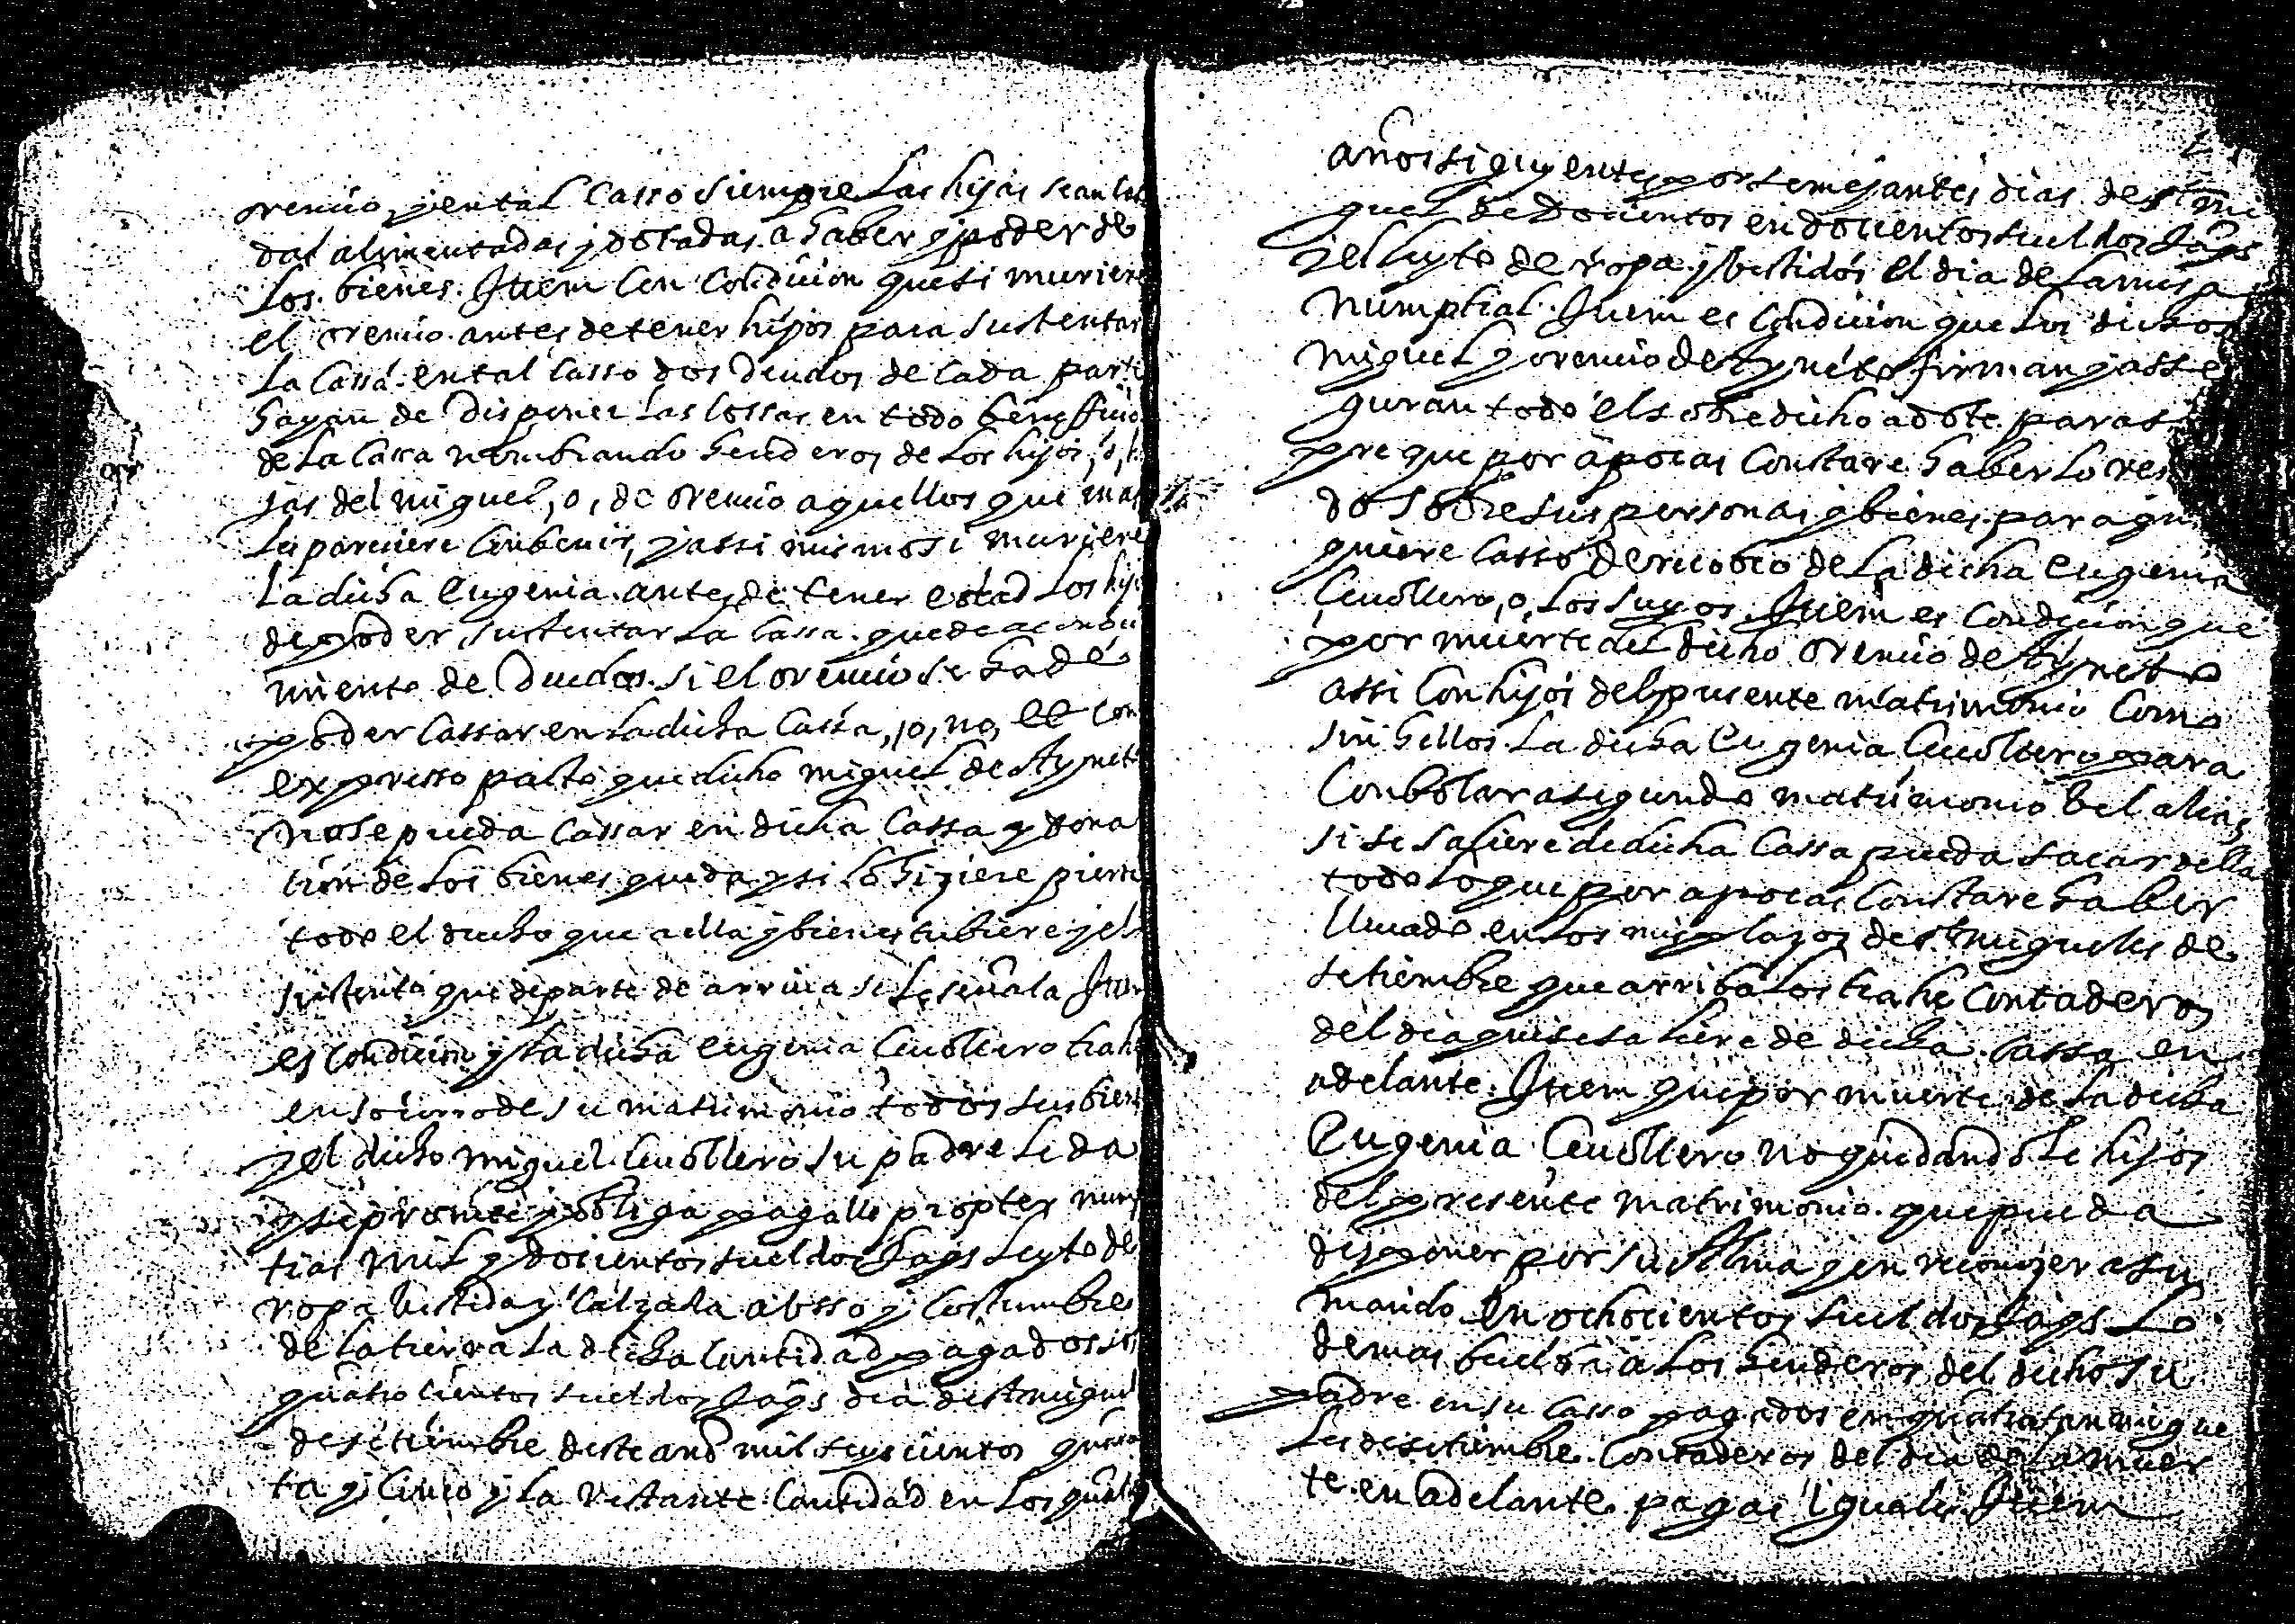 orencio, y en tal casso siempre las hijas sean las
das alimentadas y dotadas a haber y poder de
los bienes. Item con condicion que si muriere
el orencio antes de tener hijos para sustentar
la cassa. en tal casso dos deudos de cada parte
hayan de disponer las cossas en todo beneffício
de la cassa nombrando herederos de los hijos, o,
jas del miguel, o, de orencio aquellos que mas
les pareciere conbenir, y assi mismo si muriere
la dicha eugenia antes de tener edad los hij
de poder sustentar la cassa. quede a conoci
miento de deudos si el orencio se ha de
poder cassar en la dicha cassa, o, no, es con
expresso pacto que dicho miguel de Aynet
no se pueda cassar en dicha cassa y dona
cion de los bienes queda y si lo hiziere pierde
todo el drecho que a ella y bienes tubiere y el
sustento que de parte de arriba se le señala Item
es condicion q la dicha eugenia trahe
en socorro de su matrimonio todos sus bienes
y el dicho miguel su padre le da
y se promete y obliga pagalle propter nup
tias mil y docientos sueldos Jaqs lecho de
ropa bestida y calzada a usso y costumbre
de la tierra la dicha cantidad pagados
quatro cientos sueldos Jaqs dia de st miguel
de setiembre deste año mil seys cientos quaren
ta y cinco y la restante cantidad en los quales
años siguyentes por semejantes dias de st mi
guel de docientos en docientos sueldos Jaqs
y el leyto de ropa y bestidos el dia de la missa
numptial. Item es condicion que los dichos
miguel y orencio de Aynéto firman y asse
guran todo el sobre dicho adote para
pre que por apocas constare haberlo
do sobre sus personas y bienes para
quiere casso de recobro de la dicha eugenia
, o, los suyos. Item es condicion que
por muerte del dicho orencio de Aynéto
assi con hijos del presente matrimonio como
sin hellos la dicha eugenia para
conbolar a segundo matrimonio bel alias
si se saliere de dicha cassa pueda sacar della
todo lo que por apocas constare haber
lleuado en los mis plazos de st migueles de
setiembre que arriba los trahe contaderos
del dia que se saliere de dicha cassa en
adelante. Item que por muerte de la dicha
Eugenia no quedandole hijos
del presente matrimonio que pueda
disponer por su Alma y en reconozer a su
marido en ochocientos sueldos Jaqs lo
demas buelba a los herederos del dicho su
padre en su casso pagados en quatro san migue
les de setiembre contaderos del dia de la muer
te en adelante pagas iguales Item